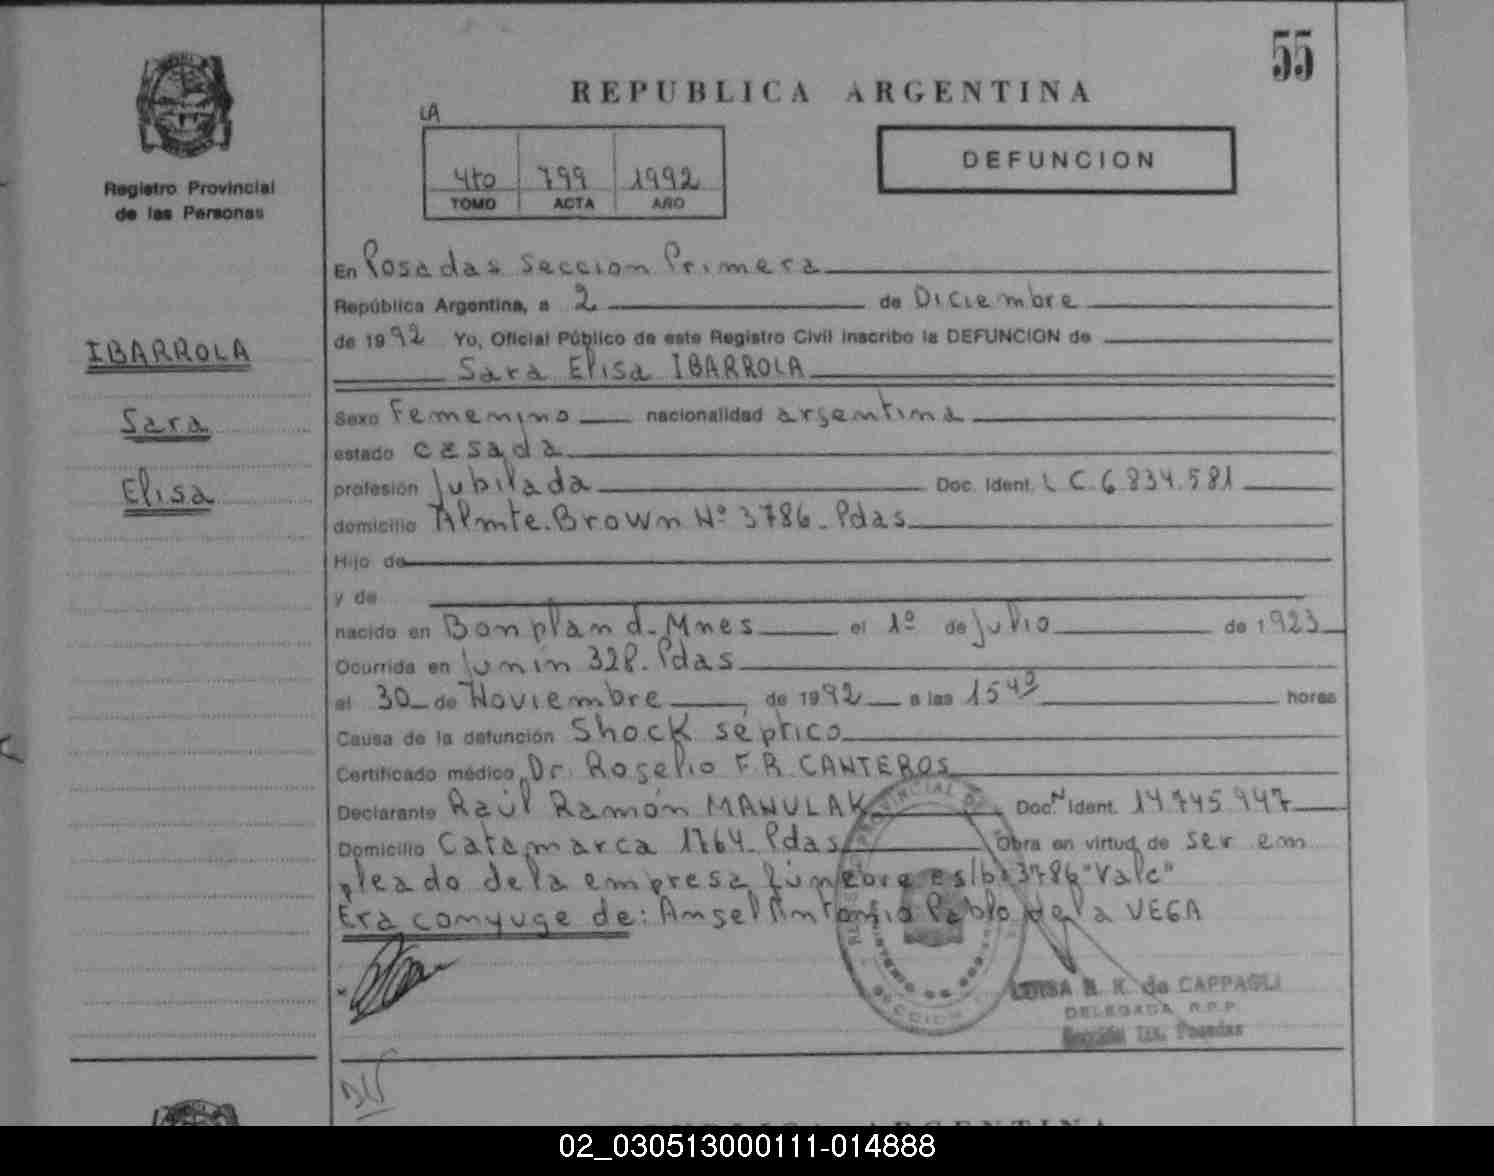 55
REPUBLICA ARGENTINA
LA
4to 799 1992
TOMO ACTA AÑO
DEFUNCION
Registro Provincial
de las Personas
IBARROLA
Sara
Elisa
En Posadas Seccion Primera
República Argentina, a 2 de Diciembre
de 1992 Yo, Oficial Público de este Registro Civil inscribo la DEFUNCION de
Sara Elisa IBARROLA
Sexo Femenino nacionalidad argentina
estado casada
profesión Jubilada Doc. Ident. L C. 6 834.581
domicilio Almte. Brown Nº 3786. Pdas
Hijo de
y de
nacido en Bonpland. Mnes el 1º de Julio de 1923
Ocurrida en Junin 328. Pdas
el 30 de Noviembre de 1992 a las 15 horas
Causa de la defunción Shock séptico
Certificado médico Dr. Rogelio F.R. CANTEROS
Declarante Raúl Ramón MANULAK Doc. N Ident. 14 745 947
Domicilio Catamarca 1764. Pdas Obra en virtud de ser em
pleado de la empresa fúnebre 3786 "Vale"
Era conyuge de: Angel Antonio Pablo de la VEGA
LUISA N. K. de CAPPAGLI
DELEGADA R.P.P.
Sección 1ra. Posadas
02_030513000111-014888